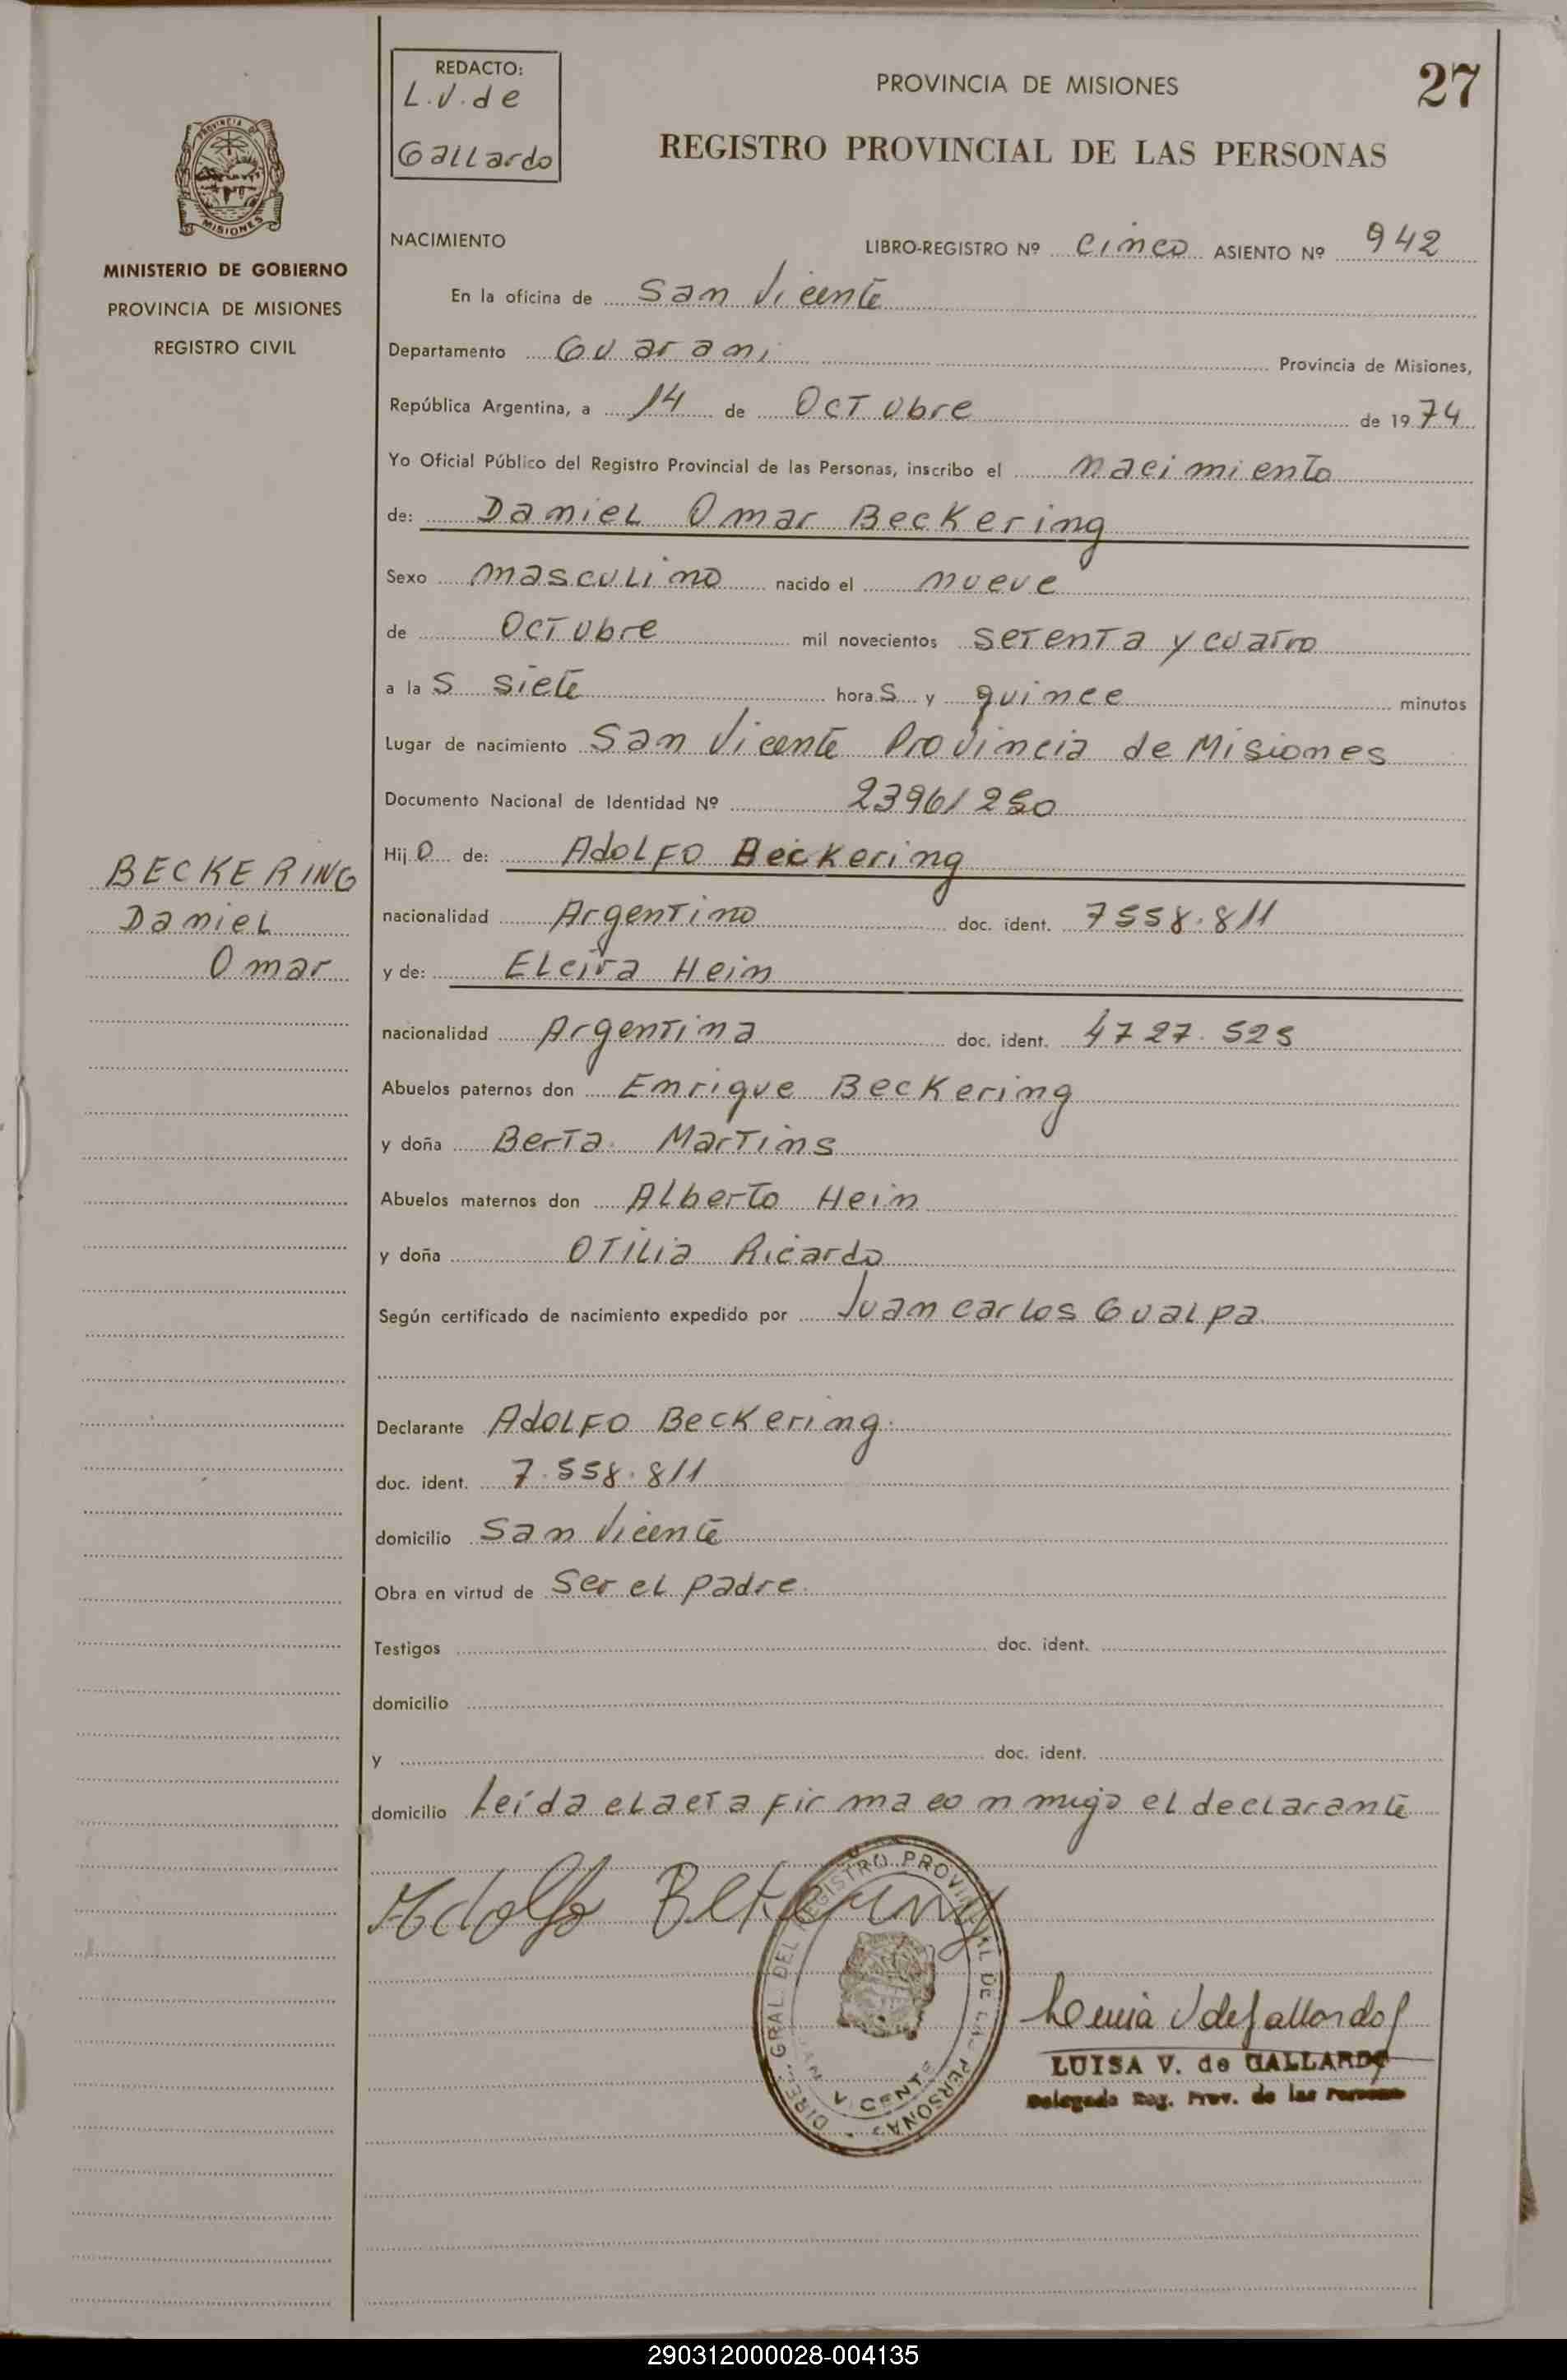 REDACTO:
L.V. de
Gallardo
PROVINCIA DE MISIONES
27
REGISTRO PROVINCIAL DE LAS PERSONAS
PROVINCIA DE
MISIONES
MINISTERIO DE GOBIERNO
PROVINCIA DE MISIONES
REGISTRO CIVIL
NACIMIENTO
LIBRO-REGISTRO Nº cinco ASIENTO Nº 942
En la oficina de San Vicente
Departamento Guarani Provincia de Misiones,
República Argentina, a 14 de Octubre de 1974
Yo Oficial Público del Registro Provincial de las Personas, inscribo el nacimiento
de: Daniel Omar Beckering
Sexo masculino nacido el nueve
de Octubre mil novecientos setenta y cuatro
a las siete horas y quince minutos
Lugar de nacimiento San Vicente Provincia de Misiones
Documento Nacional de Identidad Nº
BECKERING
Daniel
Omar
Hijo de: Adolfo Beckering
nacionalidad Argentino doc. ident. 7558.811
y de: Elcira Hein
nacionalidad Argentina doc. ident. 4727.525
Abuelos paternos don Enrique Beckering
y doña Berta Martins
Abuelos maternos don Alberto Hein
y doña Otilia Ricardo
Según certificado de nacimiento expedido por Juan Carlos Gualpa
Declarante Adolfo Beckering.
doc. ident. 7.558.811
domicilio San Vicente
Obra en virtud de Ser el padre.
Testigos doc. ident.
domicilio
y doc. ident.
domicilio Leída el acta firma conmigo el declarante
Adolfo
DIREC. GRAL. DEL REGISTRO PROVINCIAL DE LAS PERSONAS
SAN VICENTE
LUISA V. de GALLARDO
Delegada Reg. Prov. de las Personas
290312000028-004135